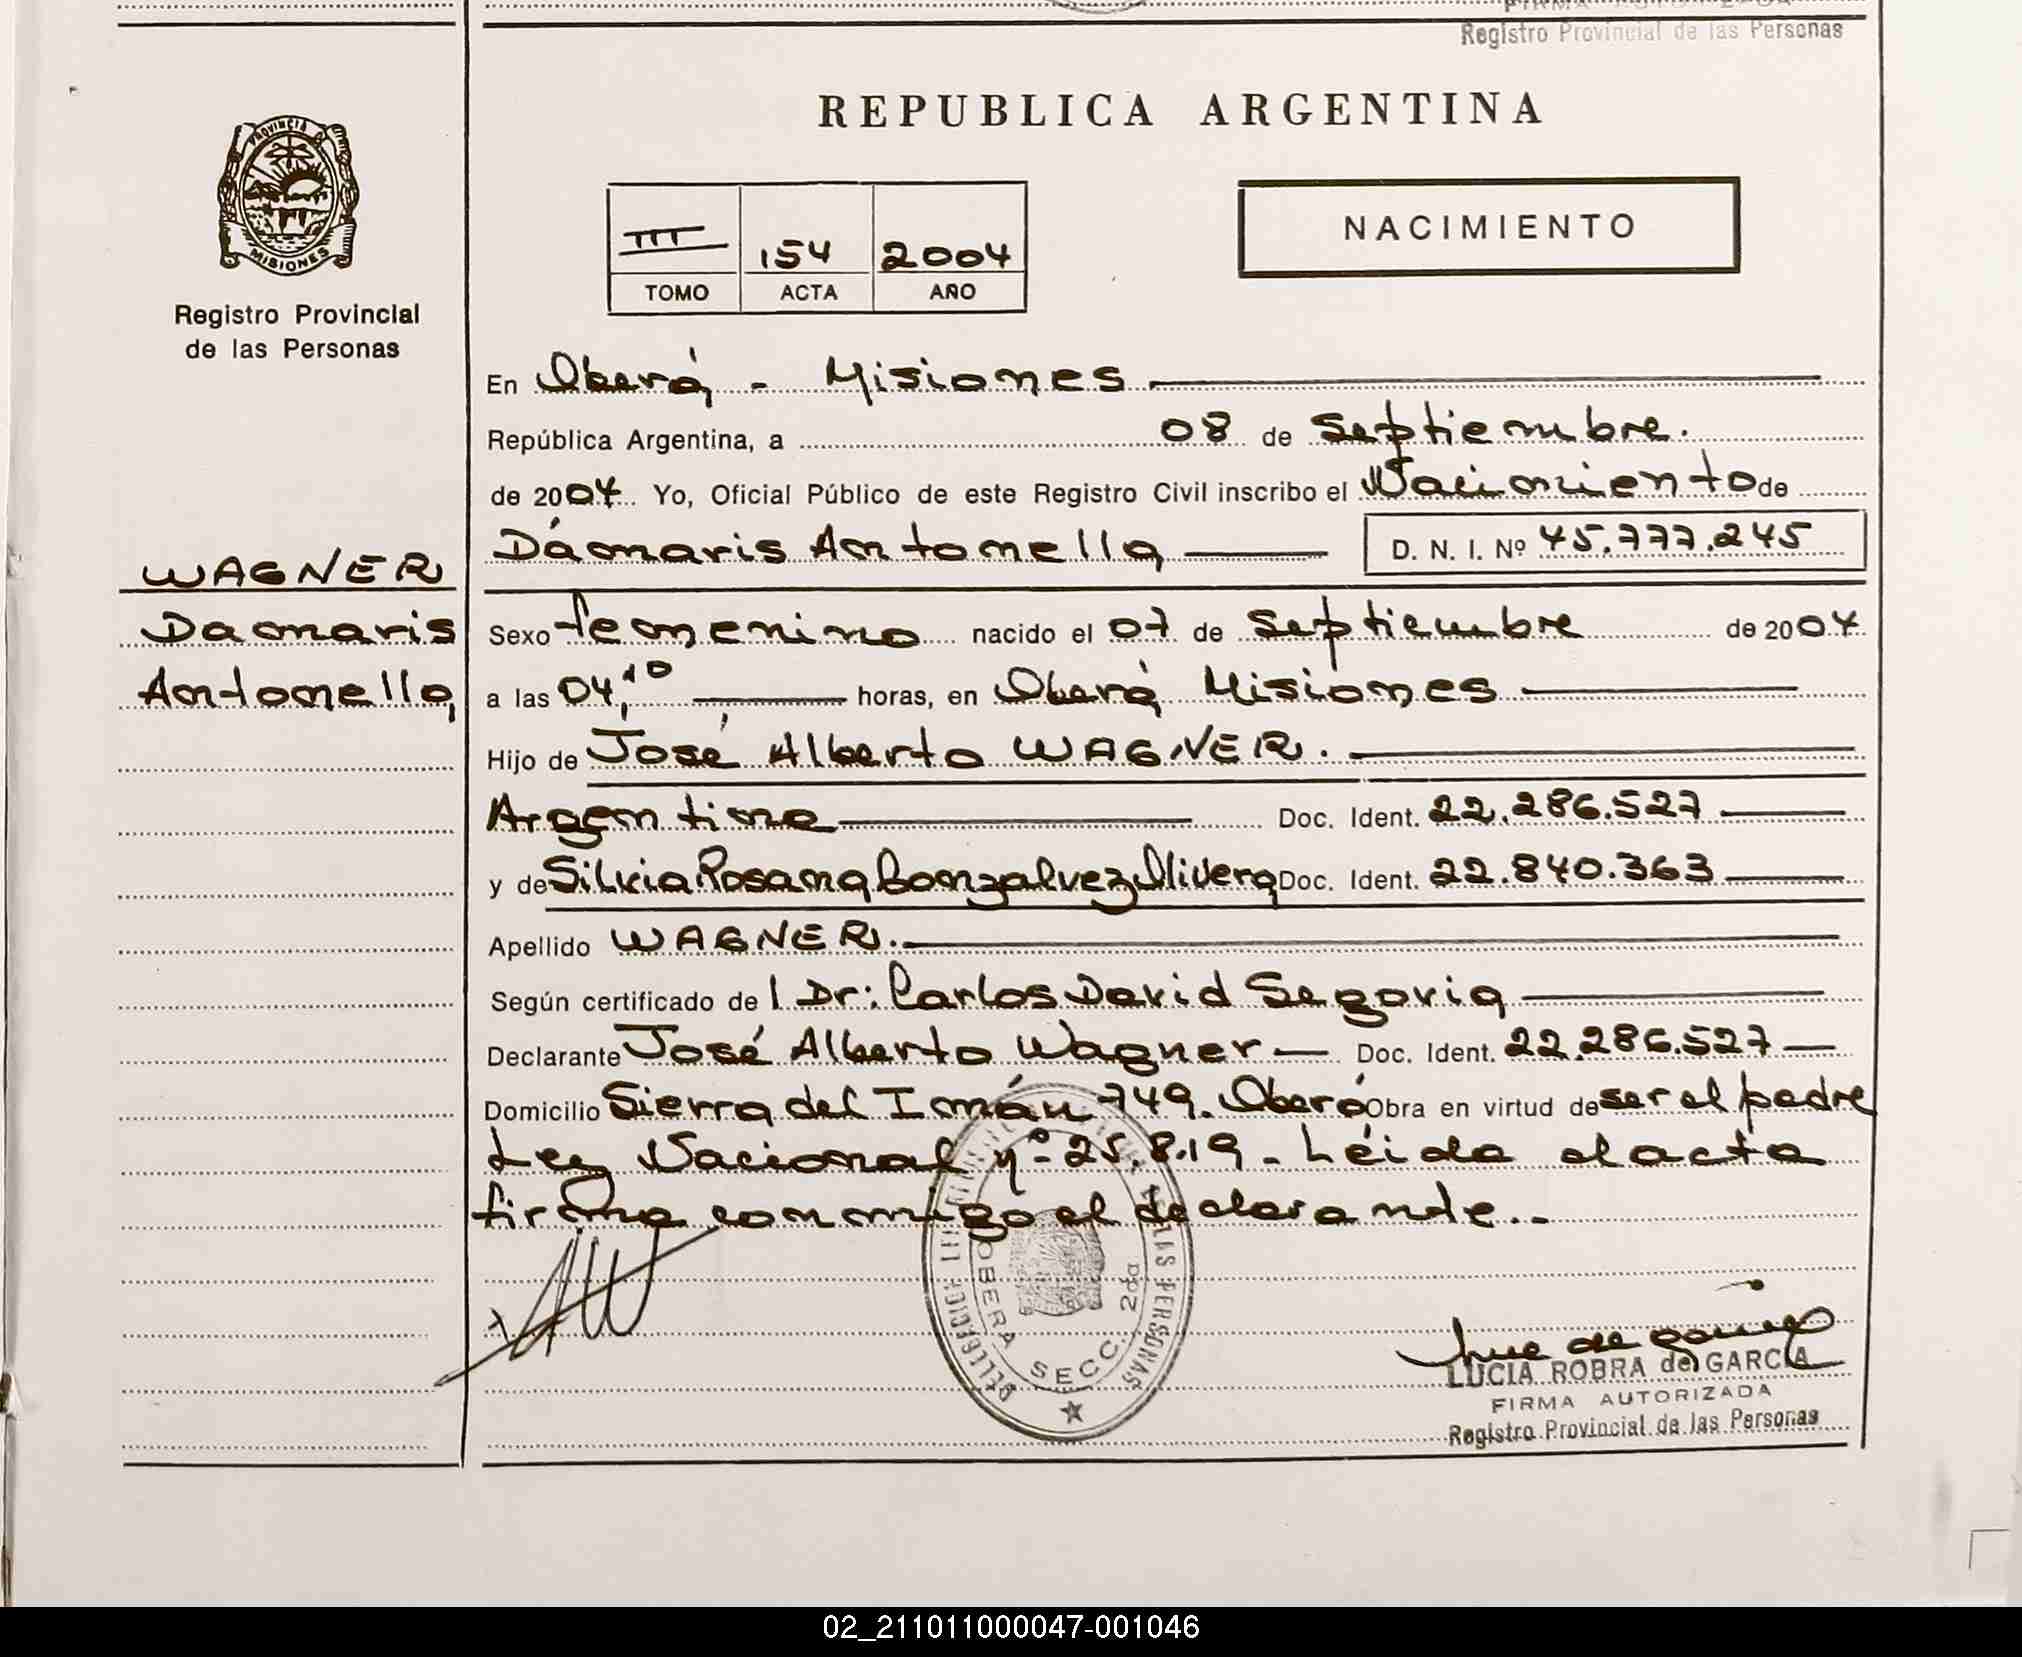 Registro Provincial de las Personas
REPUBLICA ARGENTINA
PROVINCIA
MISIONES
Registro Provincial
de las Personas
III 154 2004
TOMO ACTA AÑO
NACIMIENTO
WAGNER
Damaris
Antonella
En Oberá - Misiones
República Argentina, a 08 de Septiembre.
de 2004 Yo, Oficial Público de este Registro Civil inscribo el Nacimiento de
Dámaris Antonella D. N. I. Nº 45.777.245
Sexo femenino nacido el 07 de Septiembre de 2004
a las 04,10 horas, en Oberá Misiones
Hijo de José Alberto WAGNER.
Argentino Doc. Ident. 22.286.527
y de Silvia Rosana Gonzalvez Olivera Doc. Ident. 22.840.363
Apellido WAGNER.
Según certificado de l Dr: Carlos David Segovia
Declarante José Alberto Wagner Doc. Ident. 22.286.527
Domicilio Sierra del Imán 749. Oberá Obra en virtud de ser el padre
Ley Nacional nº 25.819 - Léida el acta
firma conmigo el declarante.-
OBERA SECC. 2da
DE LAS PERSONAS
LUCIA ROBRA de GARCIA
FIRMA AUTORIZADA
Registro Provincial de las Personas
02_211011000047-001046